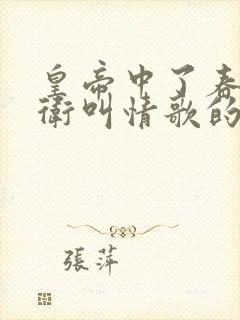 皇帝中了春
衛叫情歌的
張萍